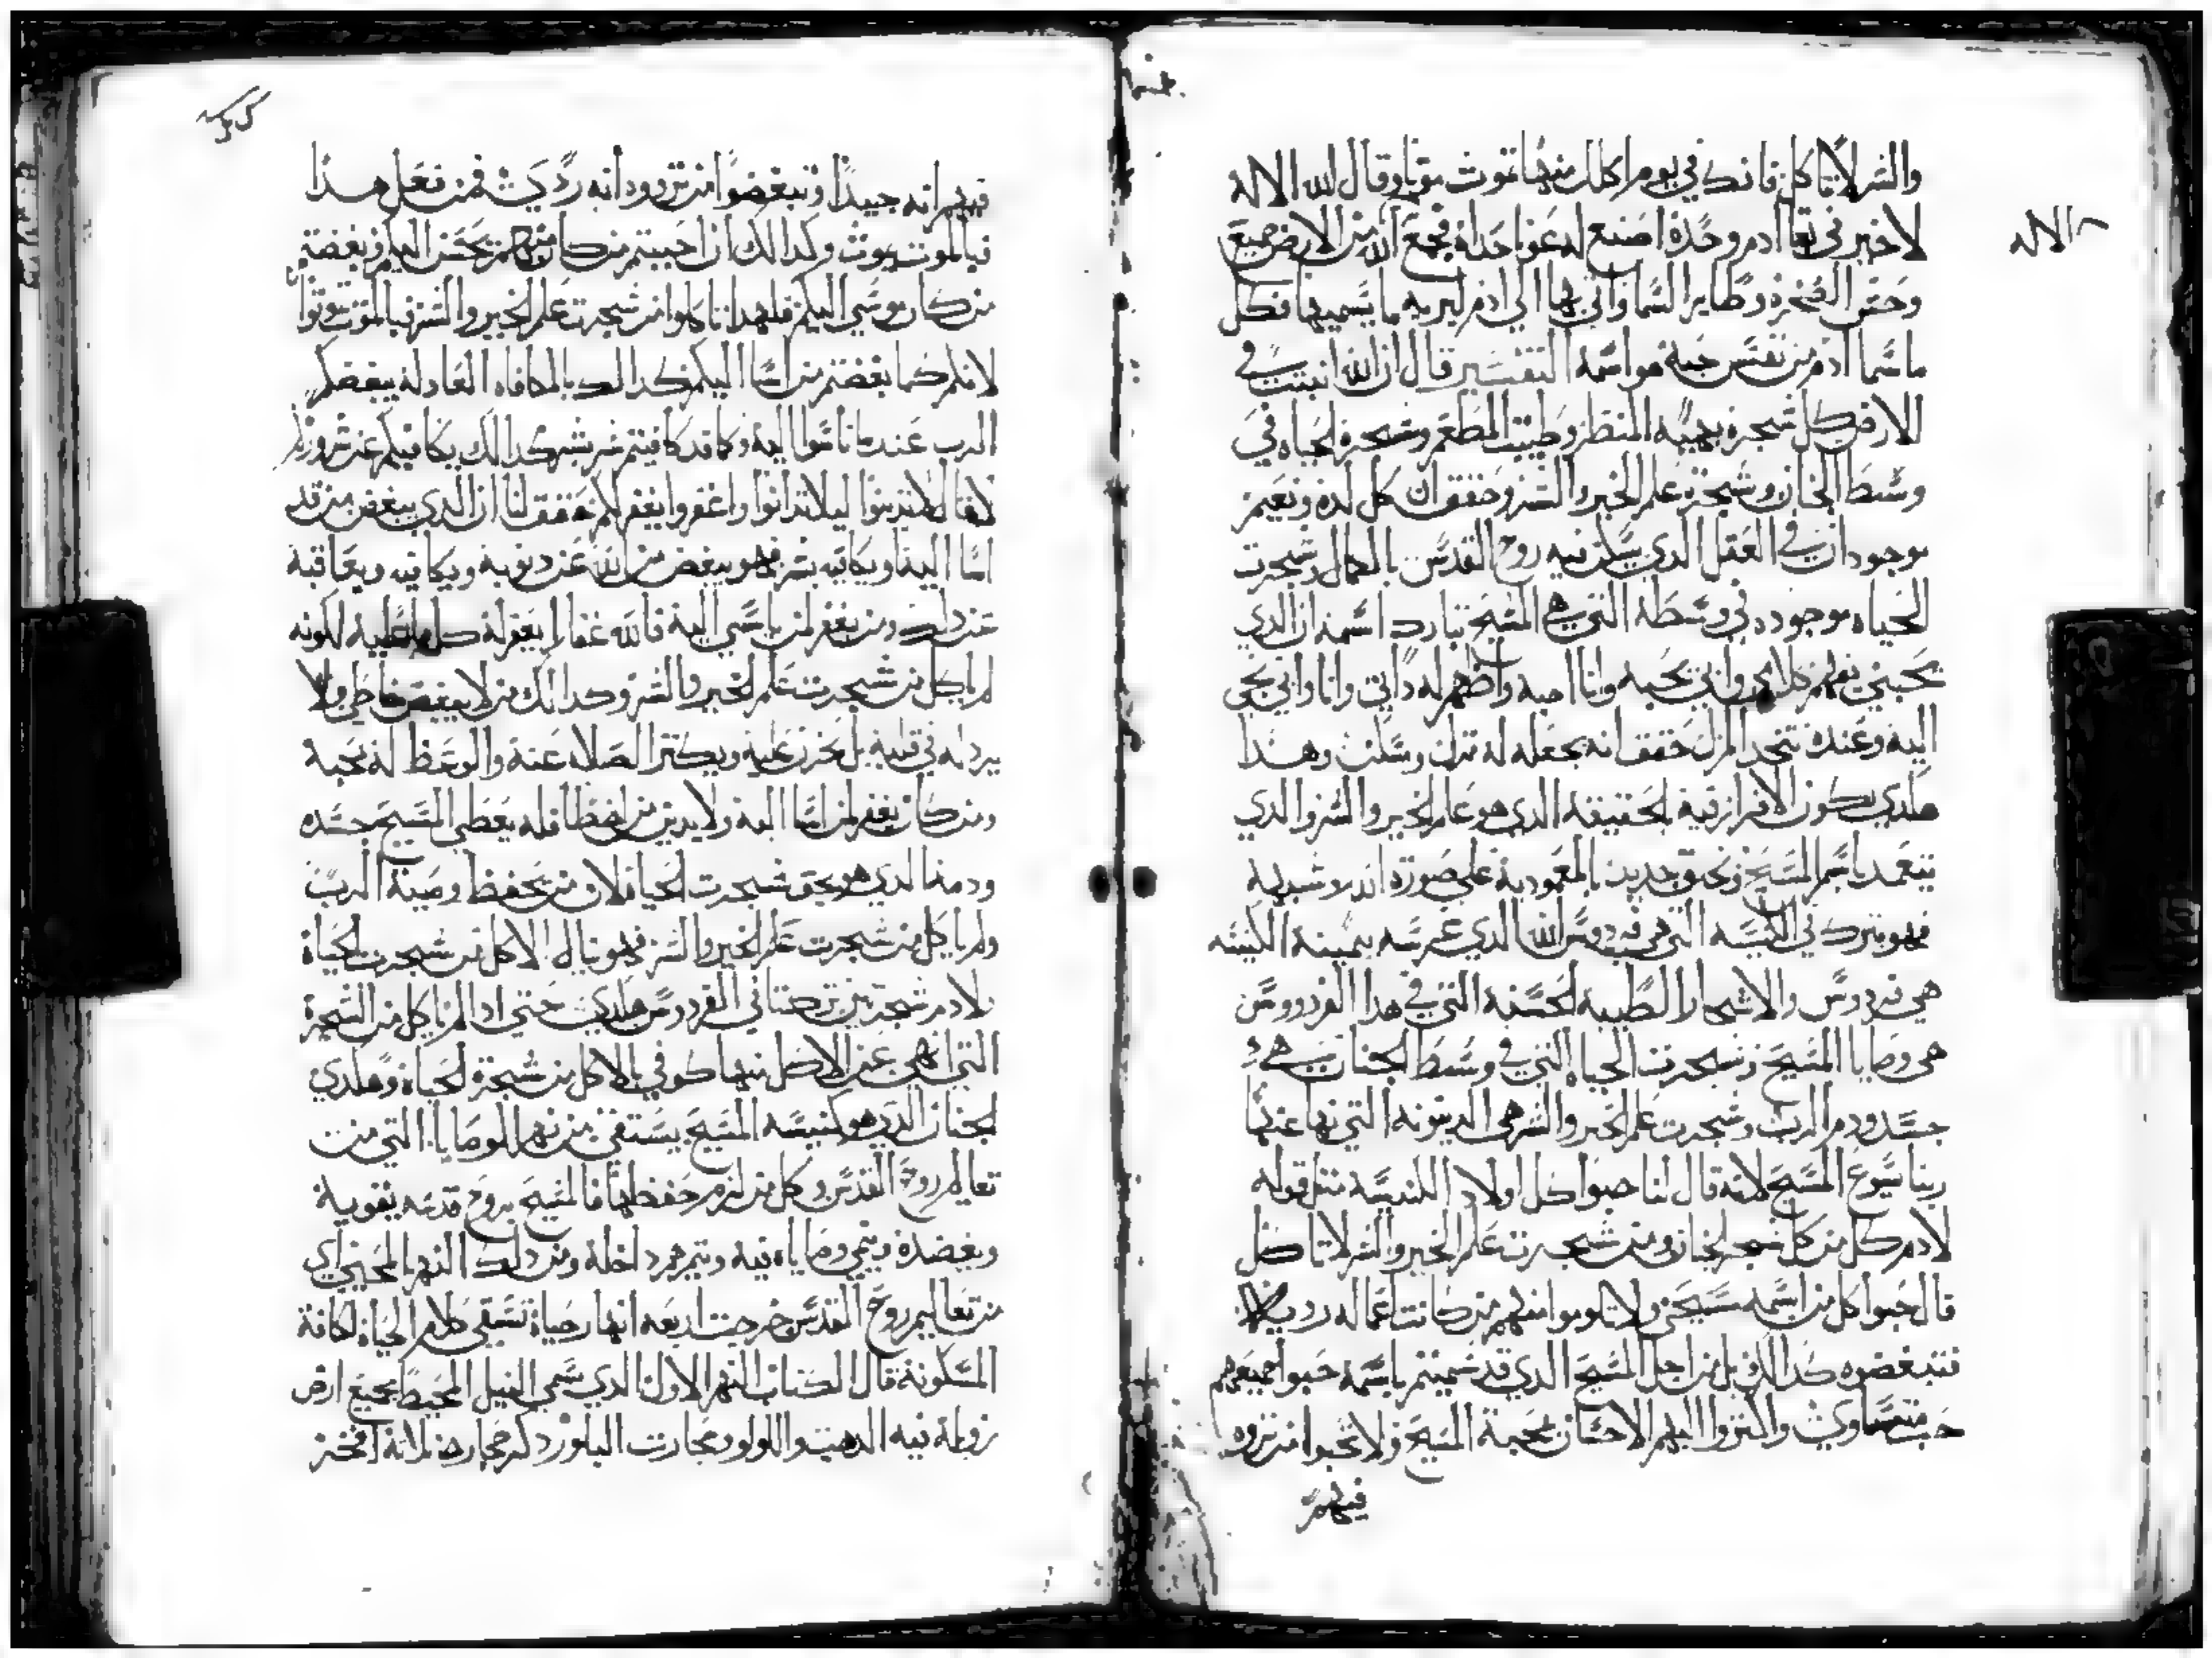 والشر لا تاكل فانك في يوم اكلك منها تموت موتا وقال الله الاله
الاله
لا خير في بقا ادم وحده اصنع له عونا حداه فجمع الله من الارض جميع
وحش الصخره وطاير السما واتي بها الي ادم ليريه ما يسميها فكل
ما سما ادم من نفس حيه هو اسمه التفسير قال ان الله انبتت في
الارض كل شجره بهيه المنظر وطيبت المطعم وشجرة الحياه في
وسط الجنان وشجرة علم الخير والشر وحقق ان كل لده ونعيم
موجودان في العقل الدي يسكن فيه روح القدس بالكمال وشجرت
الحياه موجوده في وسطه التي هي المسيح تبارك اسمه ان الدي
يحبني يفهم كلامي وابي يحبه وانا احبه واظهر له داتي وانا وابي نجي
اليه وعنده نتخد المنزل حقق انه يجعله له منزل ومسكن وهدا
هكدي يكون الافراز فيه الحقيقه الدي هو علم الخير والشر والدي
يتعمد باسم المسيح ويخلق جديد بالمعموديه علي صورة الله وشبهه
فهو يترك في الكنيسه التي هي فردوس الله الدي غرسه بيمينه الكنيسه
هي فردوس والاشجار الطيبه الحسنه التي في هدا الفردوس
هي وصايا المسيح وشجرت الحياه التي في وسط الجنان هي
جسد ودم الرب وشجرت علم الخير والشر هي الدينونه التي نها عنها
ربنا يسوع المسيح لانه قال لنا حبوا كل اولاد الكنيسه متل قوله
لادم كل من كل شجر الجنان ومن شجرت علم الخير والشر لا تاكل
قال حبوا كل من اسمه مسيحي ولا تلوموا منهم من كانت اعماله رديه
فتبغضوه كدالك بل من اجل المسيح الدي قد سميتم باسمه حبوا جميعهم
حب متساوي واكتروا اليهم الاحسان بمحبة المسيح ولا تحبوا من تروه
فيهم
فيهم انه جيدا وتبغضوا من ترو انه ردي فمن فعل هدا
فبالموت يموت وكدالك ان احببتم من كان منهم يحسن اليكم وبغضتم
من كان يوسي اليكم فلهدا ان اكلوا من شجرت علم الخير والشر فبالموت تموتوا
لانكم كما بغضتم من اسا اليكم كدالك بالمكافاه العادله يبغضكم
الرب عندما تاسوا اليه وكما قد كافيتم شر بشر كدالك يكافيكم عن شروركم
لانه قال لا تدينوا ليلا تدانوا واغفروا يغفر لكم حقق لنا ان الدي يبغض من قد
اسا اليه او يكافيه بشر فهو يبغض من الله عن دنوبه ويكافيه ويعاقبه
عن دلك ومن يغفر لمن ياسي اليه فالله غفار يغفر له كل خطية لكونه
لم ياكل من شجرت علم الخير والشر وكدالك من لا يبغض خاطي ولا
يردله في قلبه بل يحزن عليه ويكتر الصلاه عنه والوعظ له بمحبه
ومن كان يغفر لمن اسا اليه ولا يدين من اخطا فله يعطي المسيح جسده
ودمه الدي هو بحق شجرت الحياه لان من يحفظ وصية الرب
ولم ياكل من شجرت علم الخير والشر فهو ينال الاكل من شجرت الحياة
ولادم شجرتين تركتا في الفردوس هكدي حتي ادا لم ياكل من الشجرة
التي نهي عن الاكل منها كوفي بالاكل من شجرة الحياة وهكدي
الجنان الدي هو كنيسه المسيح يستقي من نهر الوصايا التي من
تعاليم روح القدس وكل من لزم حفظها فالمسيح بروح قدسه يقويه
ويعضده ويتمم وصاياه فيه وتتم هم داخله ومن دلك النهر المحيي اي
من تعاليم روح القدس خرجت اربعه انهار حياة تسقي كلام الحياة لكافة
المسكونه قال الكتاب النهر الاول الدي سمي النيل المحيط بجميع ارض
زويلة فيه الدهب واللولو وحجارت البلور دكر حجاره تلاته افخر